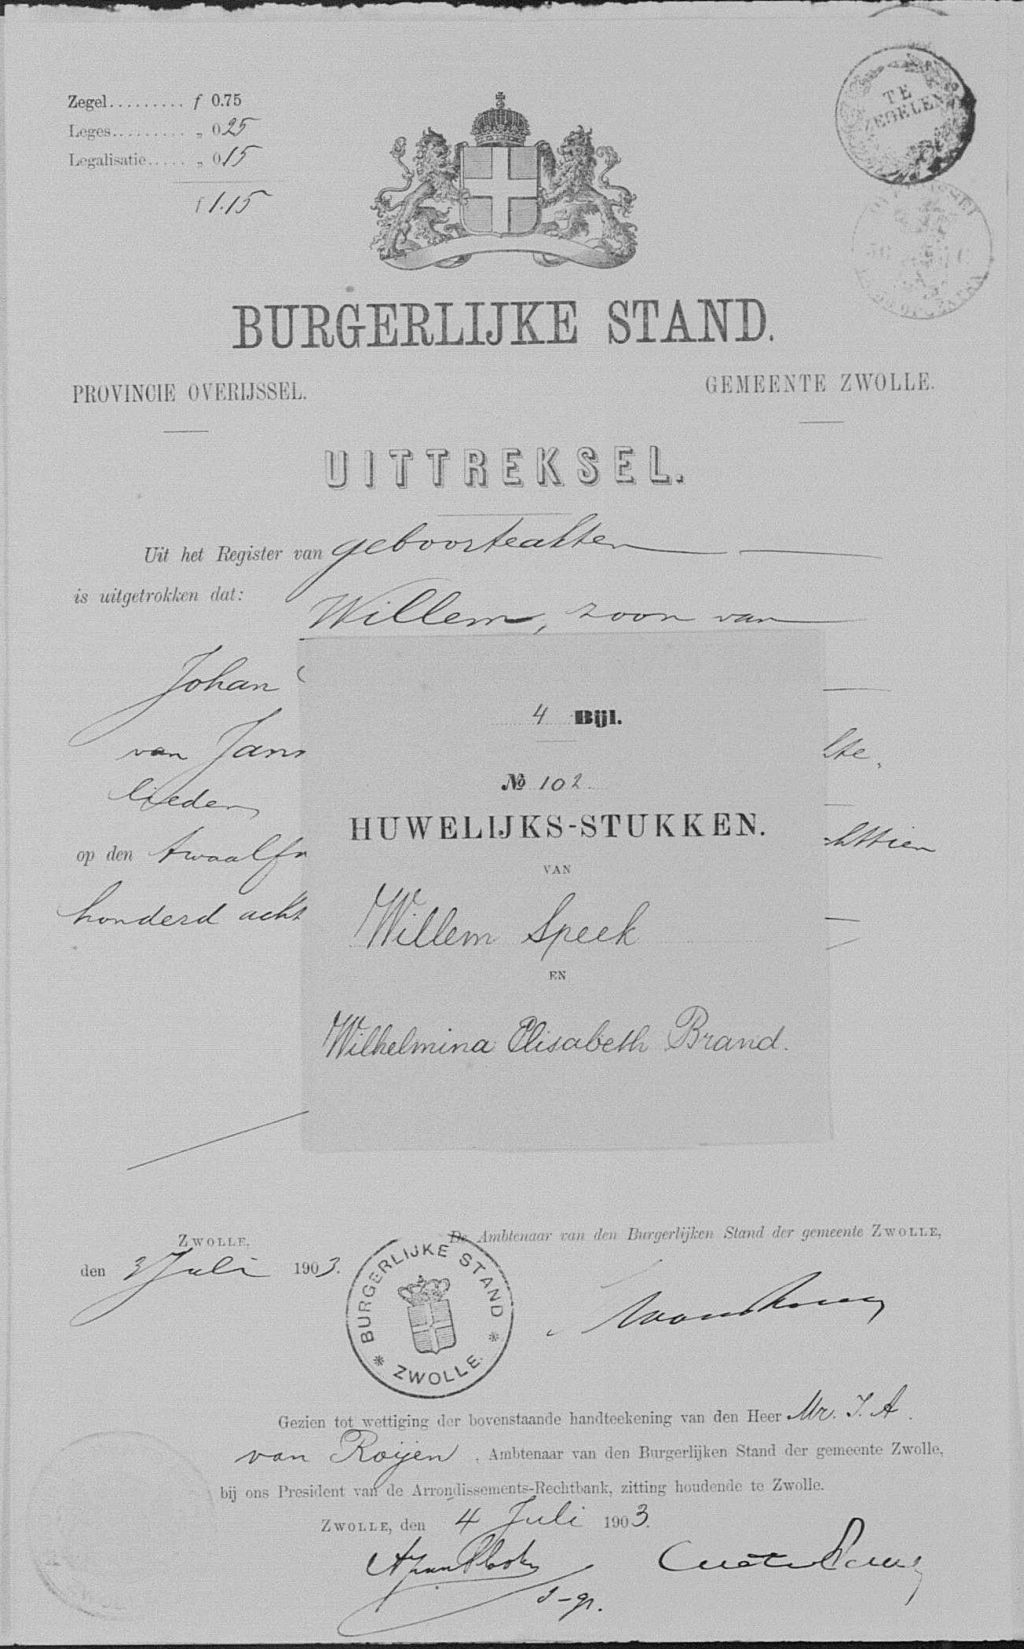 Zegel......... f 0.75
Leges......... „ 0.25
Legalisatie..... „ 0.15
f 1.15
TE ZEGELEN
BURGERLIJKE STAND.
PROVINCIE OVERIJSSEL.
GEMEENTE ZWOLLE.
UITTREKSEL.
Uit het Register van geboorteakten
is uitgetrokken dat:
Willem, zoon van
Johan
van Jans
lieden
op den twaalfn
honderd acht
4 Bijl.
№ 102
HUWELIJKS-STUKKEN.
VAN
Willem Speek
EN
Wilhelmina Elisabeth Brand.
ZWOLLE,
den 3 Juli 1903.
De Ambtenaar van den Burgerlijken Stand der gemeente ZWOLLE,
BURGERLIJKE STAND
* ZWOLLE. *
Gezien tot wettiging der bovenstaande handteekening van den Heer Mr. I. A.
van Roijen, Ambtenaar van den Burgerlijken Stand der gemeente Zwolle,
bij ons President van de Arrondissements-Rechtbank, zitting houdende te Zwolle.
ZWOLLE, den 4 Juli 1903.